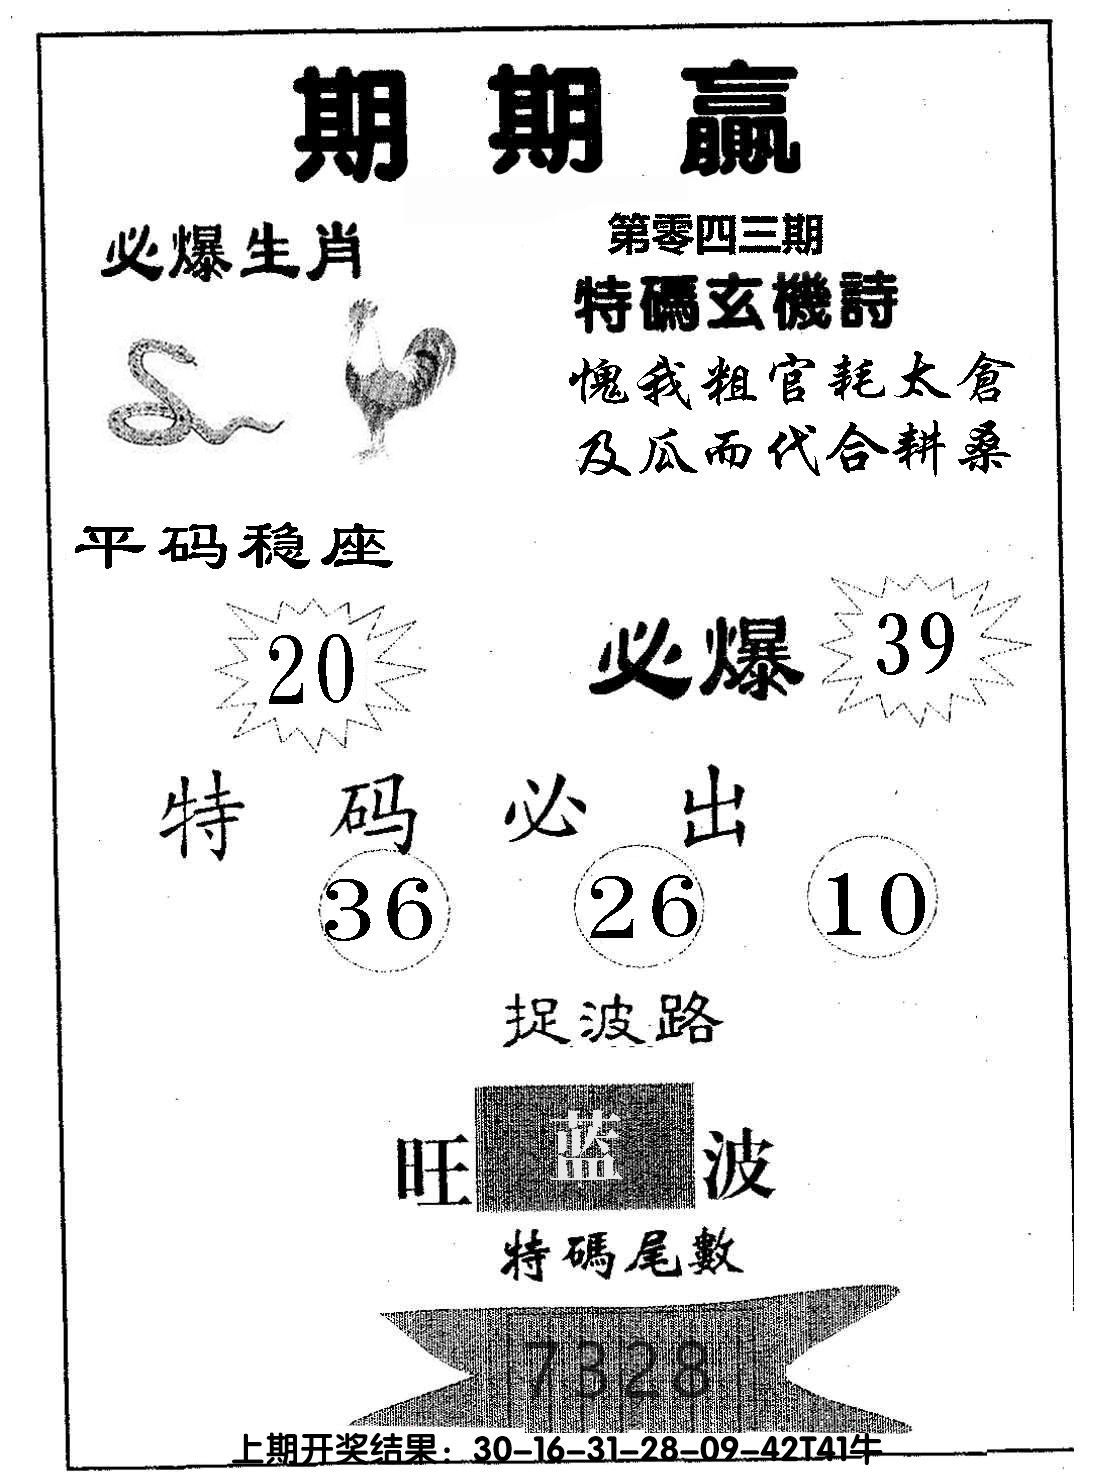 期期赢
必爆生肖
第零四三期
特碼玄機詩
愧我粗官耗太倉
及瓜而代合耕桑
平码稳座
20
必爆 39
特码必出
36 26 10
捉波路
旺 蓝 波
特碼尾數
7328
上期开奖结果：30-16-31-28-09-42T41牛